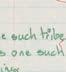 e such tribe
s one such